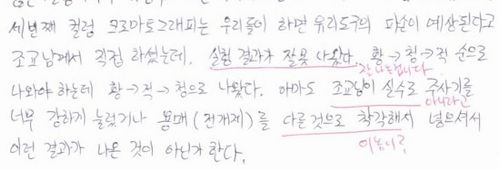 세번째 컬럼 크로마토그래피는 우리들이 하면 유리도구의 파손이 예상된다고
조교님께서 직접 하셨는데, 실험 결과가 잘못 나왔다. 황→청→적 순으로
잘 나온겁니다
나와야 하는데 황→적→청으로 나왔다. 아마도 조교님이 실수로 주사기를
아니라고
너무 강하게 눌렀거나 용매(전개제)를 다른 것으로 착각해서 넣으셔서
이놈이?
이런 결과가 나온 것이 아닌가 한다.